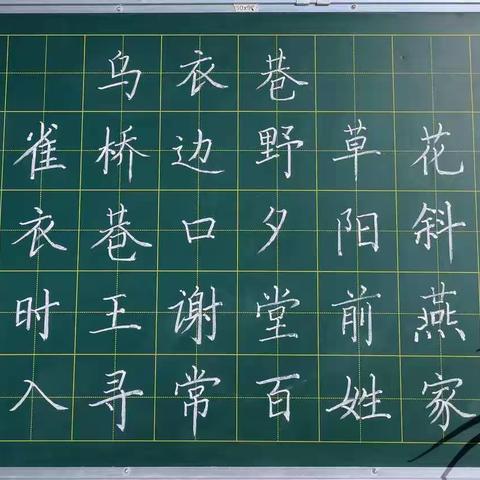 乌衣巷
雀桥边野草花
衣巷口夕阳斜
时王谢堂前燕
入寻常百姓家